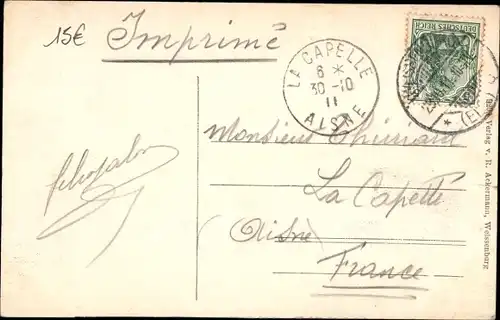 15€
Imprimé
DEUTSCHES REICH
LA CAPELLE
6 *
30-10
11
AISNE
Monsieur Thiriard
La Capelle
(Aisne)
France
Verlag v. R. Ackermann, Weissenburg